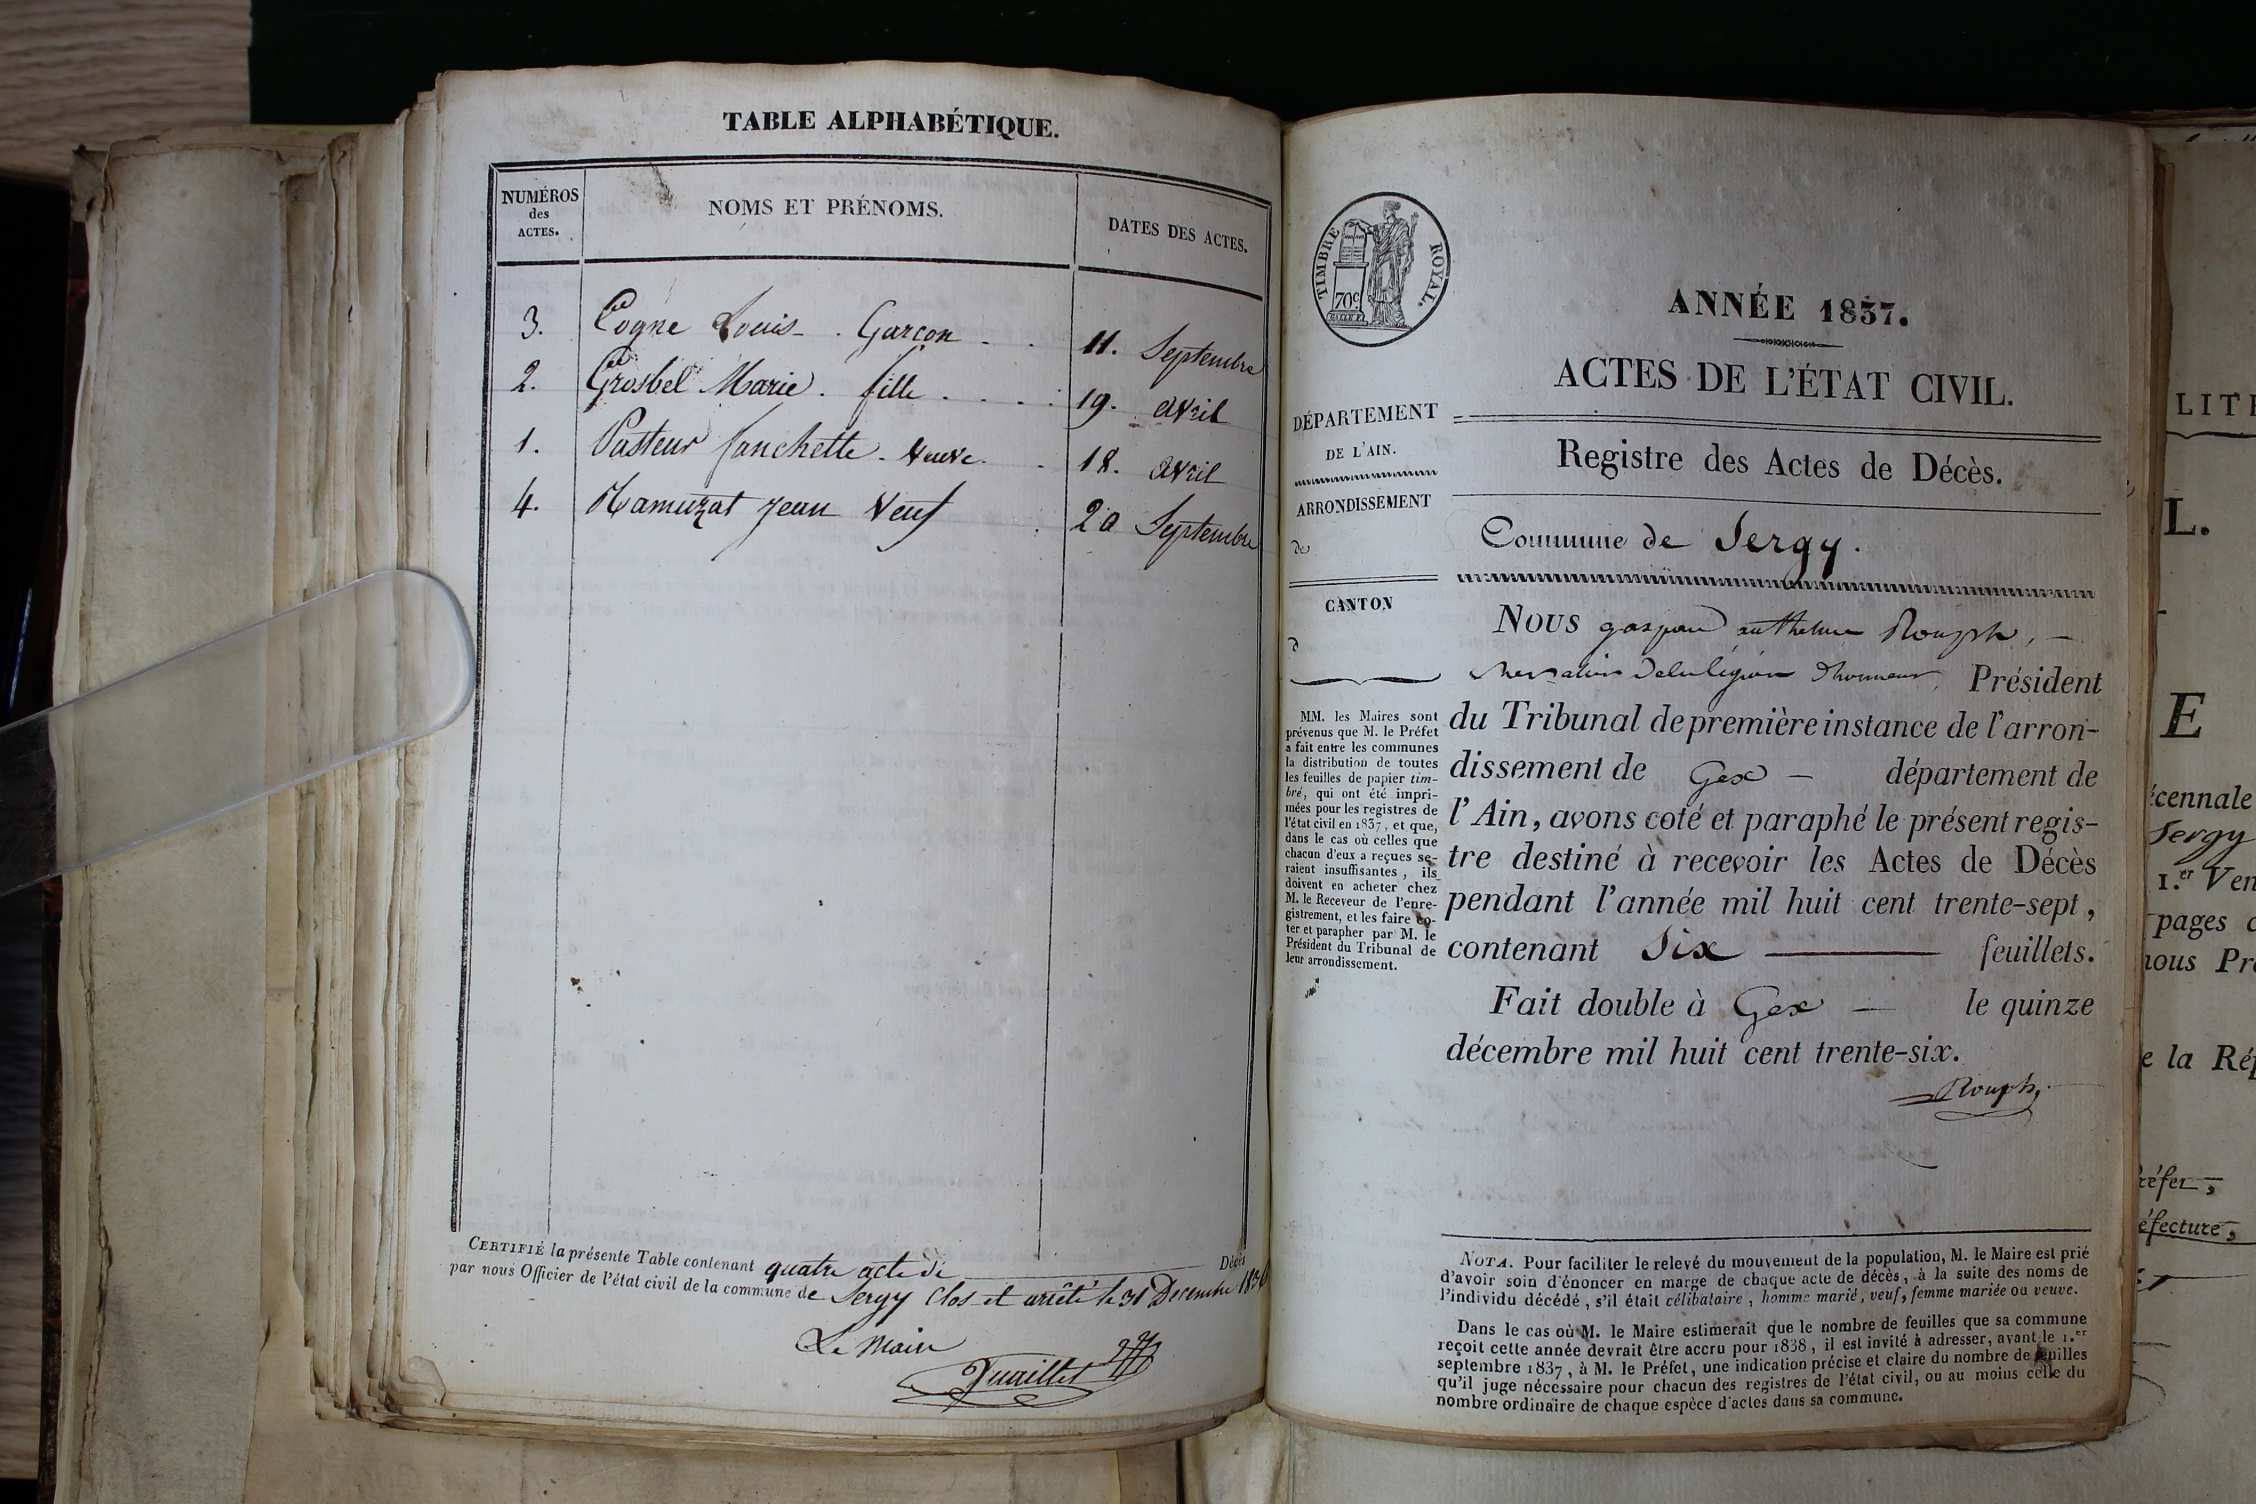 TABLE ALPHABÉTIQUE.
NUMÉROS
des
ACTES.
NOMS ET PRÉNOMS.
DATES DES ACTES.
3. Cogne Louis - . Garcon - . 11. Septembre
2. Grosbel Marie . fille . . . . 19. avril
1. Pasteur fanchette - veuve - . 18. avril
4. Ramuzat Jean Veuf . 20 Septembre
CERTIFIÉ la présente Table contenant quatre acte de Décès
par nous Officier de l'état civil de la commune de Sergy Clos et arrêté le 31 Decembre 1836
Le Maire
TIMBRE ROYAL.
70c
ANNÉE 1837.
ACTES DE L'ÉTAT CIVIL.
Registre des Actes de Décès.
Commune de Sergy.
DÉPARTEMENT
DE L'AIN.
ARRONDISSEMENT
de
CANTON
d
MM. les Maires sont
prévenus que M. le Préfet
a fait entre les communes
la distribution de toutes
les feuilles de papier tim-
bré, qui ont été impri-
mées pour les registres de
l'état civil en 1837, et que,
dans le cas où celles que
chacun d'eux a reçues se-
raient insuffisantes, ils
doivent en acheter chez
M. le Receveur de l'enre-
gistrement, et les faire co-
ter et parapher par M. le
Président du Tribunal de
leur arrondissement.
Nous gaspard anthelme Rouph, -
chevalier de la légion d'honneur, Président
du Tribunal de première instance de l'arron-
dissement de Gex - département de
l'Ain, avons coté et paraphé le présent regis-
tre destiné à recevoir les Actes de Décès
pendant l'année mil huit cent trente-sept,
contenant Six feuillets.
Fait double à Gex - le quinze
décembre mil huit cent trente-six.
Rouph
NOTA. Pour faciliter le relevé du mouvement de la population, M. le Maire est prié
d'avoir soin d'énoncer en marge de chaque acte de décès, à la suite des noms de
l'individu décédé, s'il était célibataire, homme marié, veuf, femme mariée ou veuve.
Dans le cas où M. le Maire estimerait que le nombre de feuilles que sa commune
reçoit cette année devrait être accru pour 1838, il est invité à adresser, avant le 1.er
septembre 1837, à M. le Préfet, une indication précise et claire du nombre de feuilles
qu'il juge nécessaire pour chacun des registres de l'état civil, ou au moins celle du
nombre ordinaire de chaque espèce d'actes dans sa commune.
LITÉ
L.
E
écennale
Sergy
1.er Ven
pages c
nous Pré
e la Rép
réfet,
éfecture,